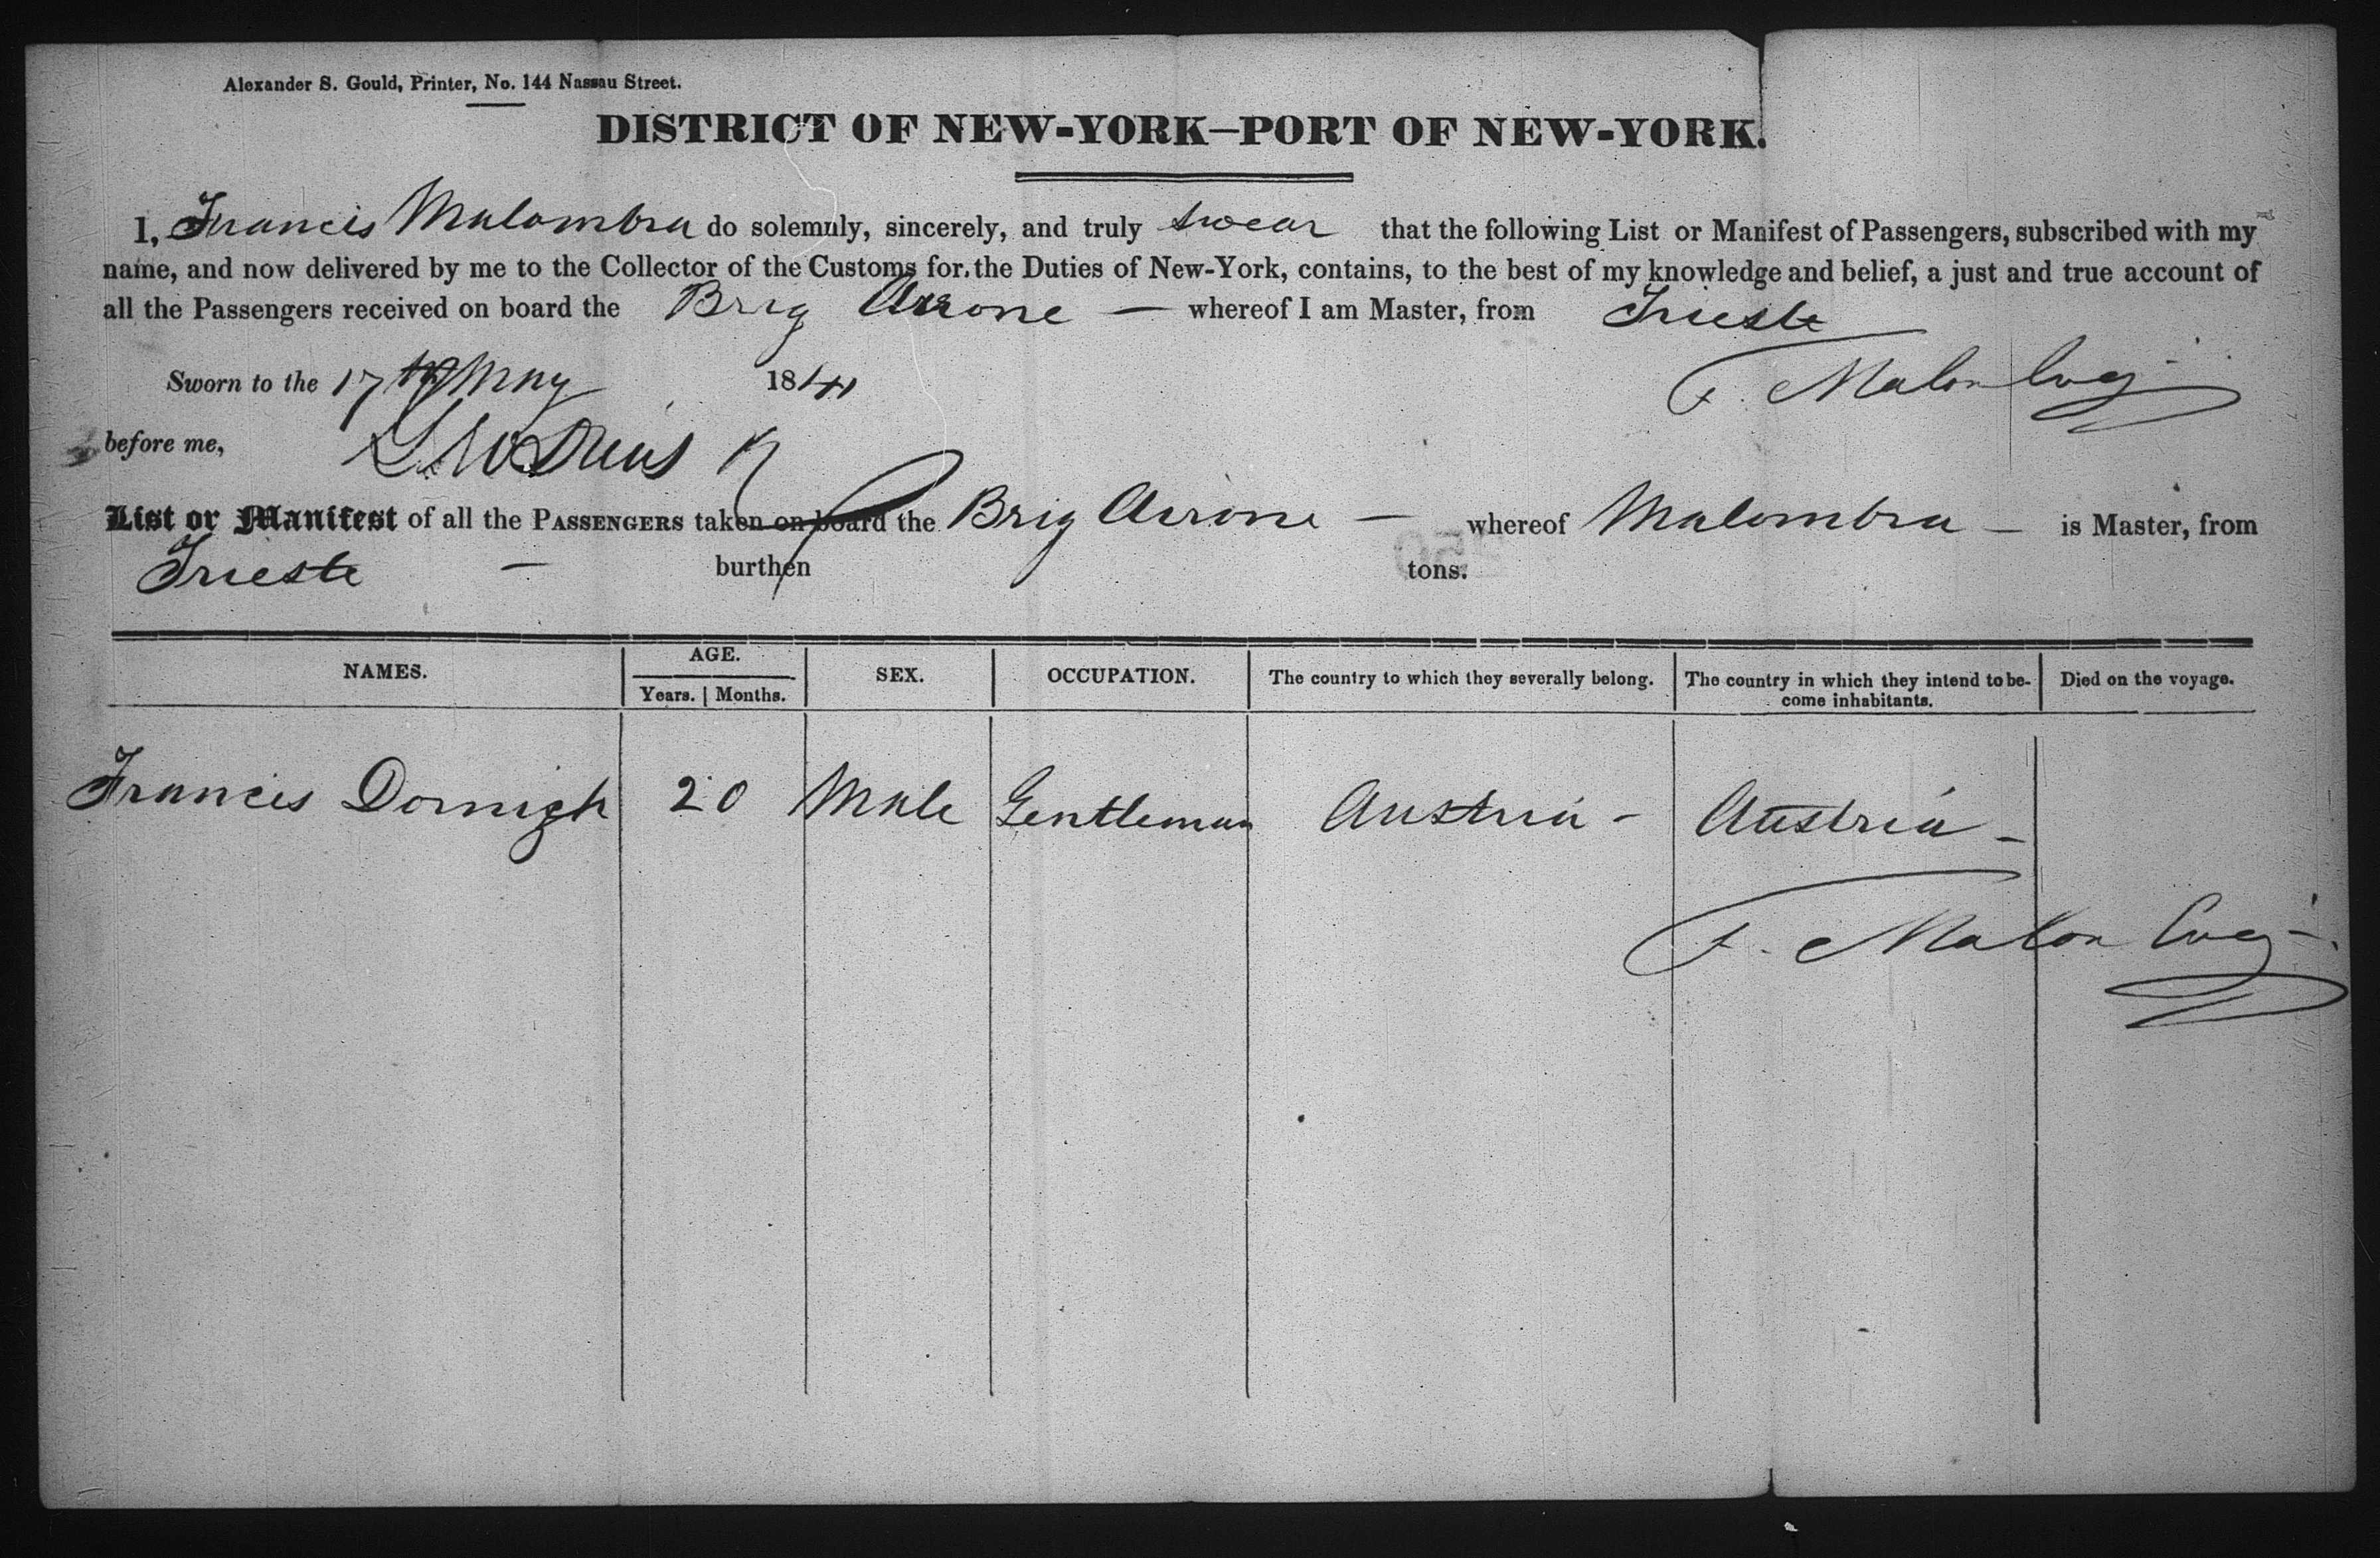 Alexander S. Gould, Printer, No. 144 Nassau Street.
DISTRICT OF NEW-YORK—PORT OF NEW-YORK.
I, Francis Malombra do solemnly, sincerely, and truly swear that the following List or Manifest of Passengers, subscribed with my
name, and now delivered by me to the Collector of the Customs for the Duties of New-York, contains, to the best of my knowledge and belief, a just and true account of
all the Passengers received on board the Brig — whereof I am Master, from Trieste
Sworn to the 17th May 1841
F.
before me,
List or Manifest of all the PASSENGERS taken on board the Brig Airone — whereof Malombra — is Master, from
Trieste — burthen tons.
NAMES. AGE. SEX. OCCUPATION. The country to which they severally belong. The country in which they intend to be- Died on the voyage.
Years. Months. come inhabitants.
Francis 20 Male Gentleman Austria - Austria -
F.